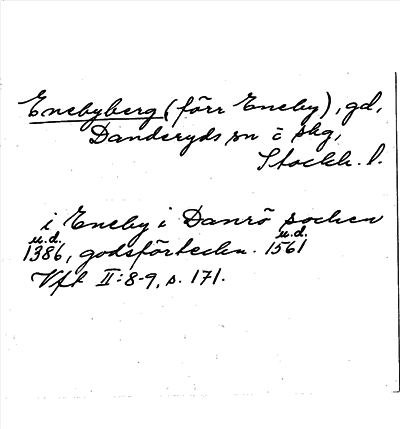 Enebyberg (förr Eneby), gd,
Danderyds sn o skg,
Stockh. l.
i Eneby i Danrö socken
u.d. u.d.
1386, godsförteckn. 1561
Vft II:8-9, s. 171.